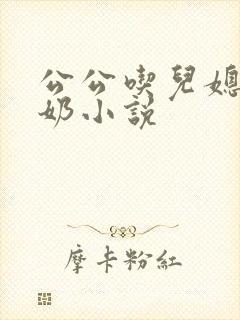 公公喫兒媳
奶小說
摩卡粉紅